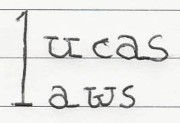 lucas
laws